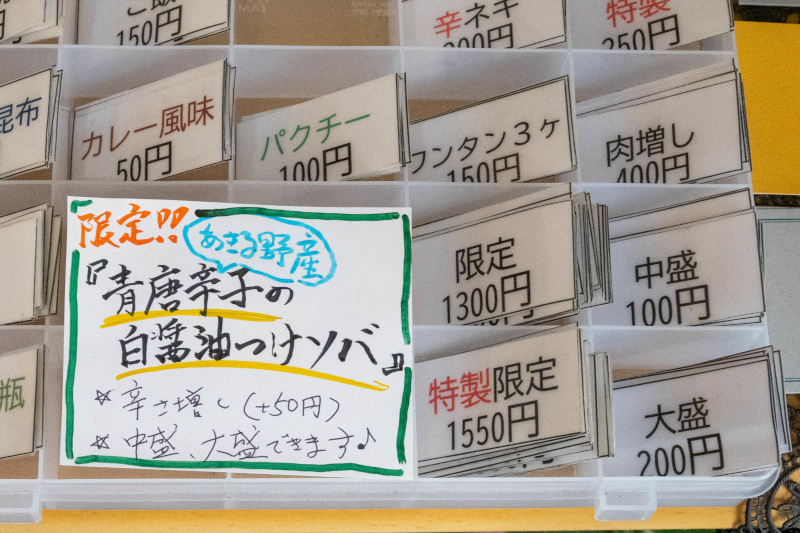 ご飯
150円
辛ネギ
200円
特製
250円
昆布
カレー風味
50円
パクチー
100円
ワンタン3ヶ
150円
肉増し
400円
限定!!
あきる野産
『青唐辛子の
白醤油つけソバ』
☆辛さ増し(+50円)
☆中盛、大盛できます♪
限定
1300円
中盛
100円
瓶
特製限定
1550円
大盛
200円